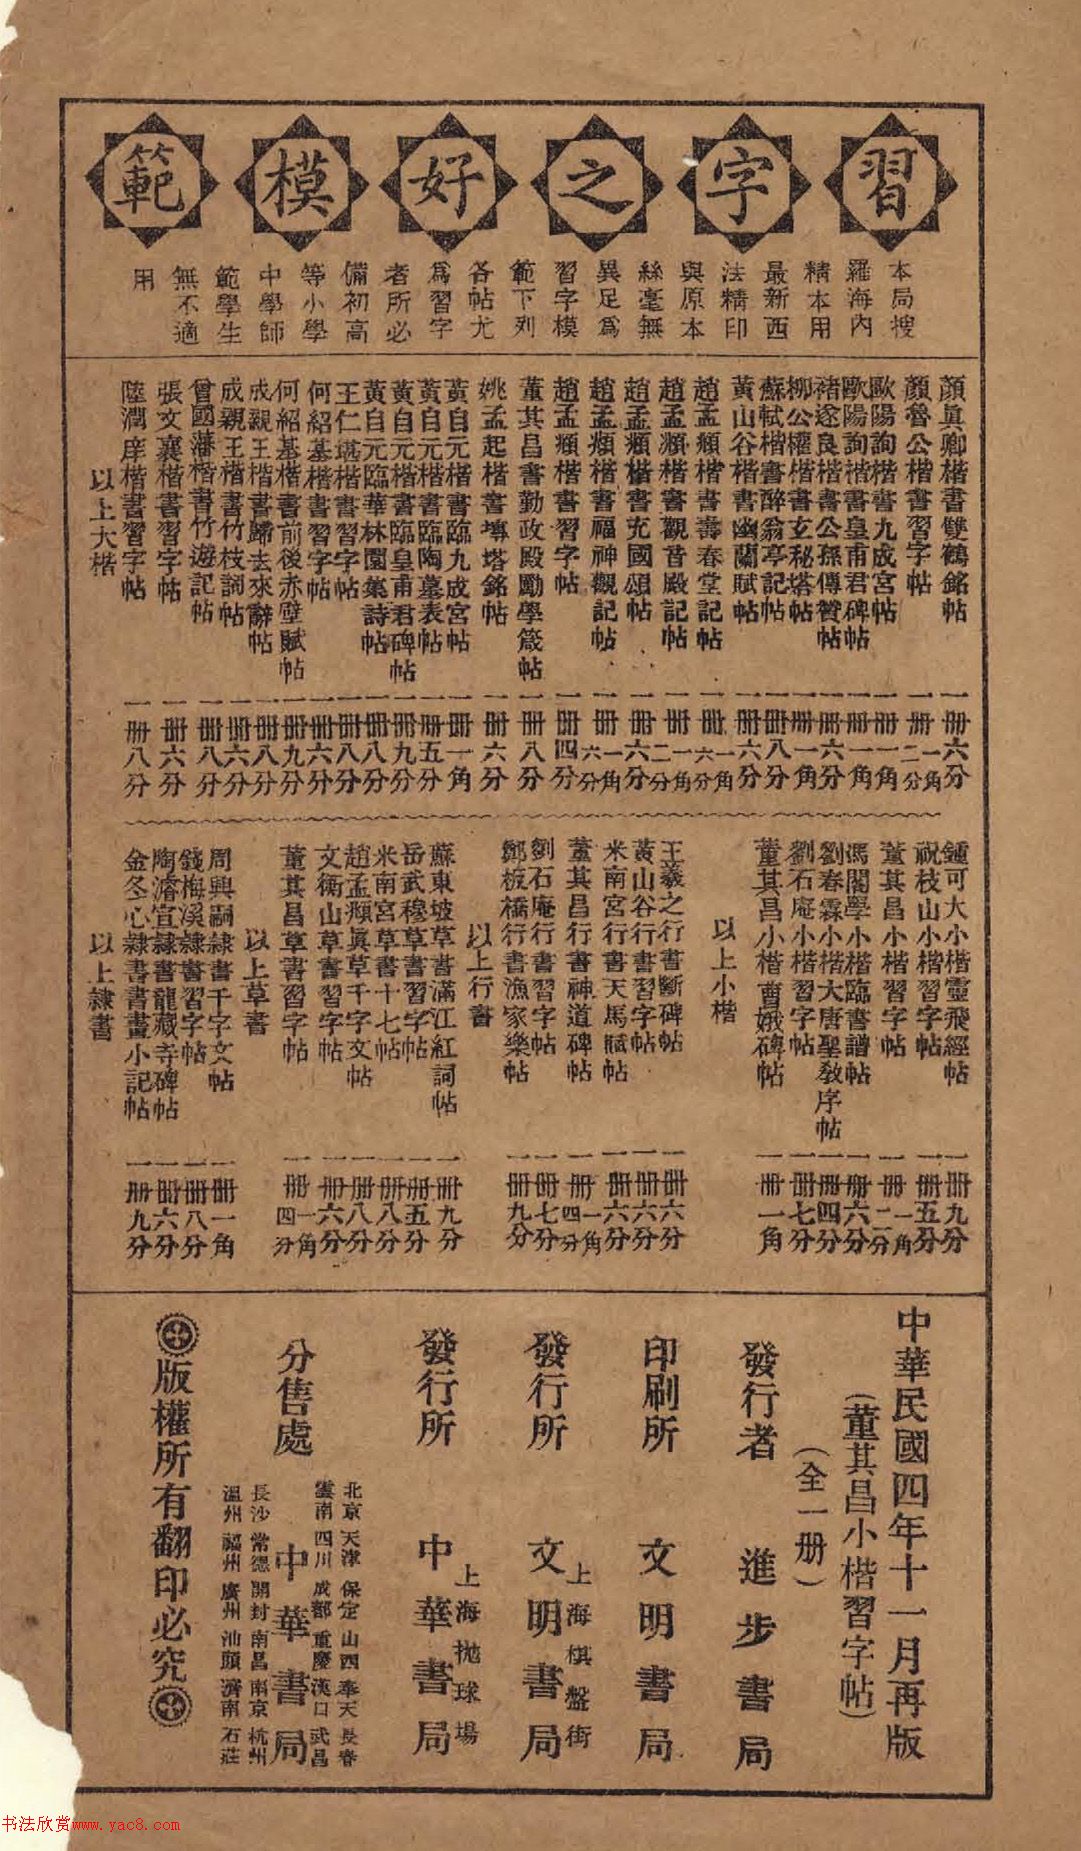 習字之好模範
本局搜
羅海內
精本用
最新西
法精印
與原本
絲毫無
異足爲
習字模
範下列
各帖尤
爲習字
者所必
備初高
等小學
中學師
範學生
無不適
用
顏眞卿楷書雙鶴銘帖 一冊六分
顏魯公楷書習字帖 一冊一角二分
歐陽詢楷書九成宮帖 一冊一角
歐陽詢楷書皇甫君碑帖 一冊一角
褚遂良楷書公孫傳贊帖 一冊六分
柳公權楷書玄秘塔帖 一冊一角
蘇軾楷書醉翁亭記帖 一冊八分
黃山谷楷書幽蘭賦帖 一冊六分
趙孟頫楷書壽春堂記帖 一冊一角六分
趙孟頫楷書觀音殿記帖 一冊一角二分
趙孟頫楷書充國頌帖 一冊六分
趙孟頫楷書福神觀記帖 一冊一角六分
趙孟頫楷書習字帖 一冊四分
董其昌書勤政殿勵學箴帖 一冊八分
姚孟起楷書塼塔銘帖 一冊六分
黃自元楷書臨九成宮帖 一冊一角
黃自元楷書臨陶墓表帖 一冊五分
黃自元楷書臨皇甫君碑帖 一冊九分
黃自元臨華林園集詩帖 一冊八分
王仁堪楷書習字帖 一冊八分
何紹基楷書習字帖 一冊六分
何紹基楷書前後赤壁賦帖 一冊九分
成親王楷書歸去來辭帖 一冊八分
成親王楷書竹枝詞帖 一冊六分
曾國藩楷書竹遊記帖 一冊八分
張文襄楷書習字帖 一冊六分
陸潤庠楷書習字帖 一冊八分
以上大楷
鍾可大小楷靈飛經帖 一冊九分
祝枝山小楷習字帖 一冊五分
董其昌小楷習字帖 一冊一角二分
馮閣學小楷臨書譜帖 一冊六分
劉春霖小楷大唐聖教序帖 一冊四分
劉石庵小楷習字帖 一冊七分
董其昌小楷曹娥碑帖 一冊一角
以上小楷
王羲之行書斷碑帖 一冊六分
黃山谷行書習字帖 一冊六分
米南宮行書天馬賦帖 一冊六分
董其昌行書神道碑帖 一冊一角四分
劉石庵行書習字帖 一冊七分
鄭板橋行書漁家樂帖 一冊九分
以上行書
蘇東坡草書滿江紅詞帖 一冊九分
岳武穆草書習字帖 一冊五分
米南宮草書十七帖 一冊八分
趙孟頫眞草千字文帖 一冊八分
文衡山草書習字帖 一冊六分
董其昌草書習字帖 一冊一角四分
以上草書
周興嗣隸書千字文帖 一冊一角
錢梅溪隸書習字帖 一冊八分
陶濬宣隸書龍藏寺碑帖 一冊六分
金冬心隸書書畫小記帖 一冊九分
以上隸書
中華民國四年十一月再版
（董其昌小楷習字帖）
（全一冊）
發行者 進步書局
印刷所 文明書局
發行所 上海棋盤街 文明書局
發行所 上海拋球場 中華書局
分售處 中華書局
北京 天津 保定 山西 奉天 長春
雲南 四川 成都 重慶 漢口 武昌
長沙 常德 開封 南昌 南京 杭州
溫州 福州 廣州 汕頭 濟南 石莊
版權所有翻印必究
书法欣赏www.yac8.com